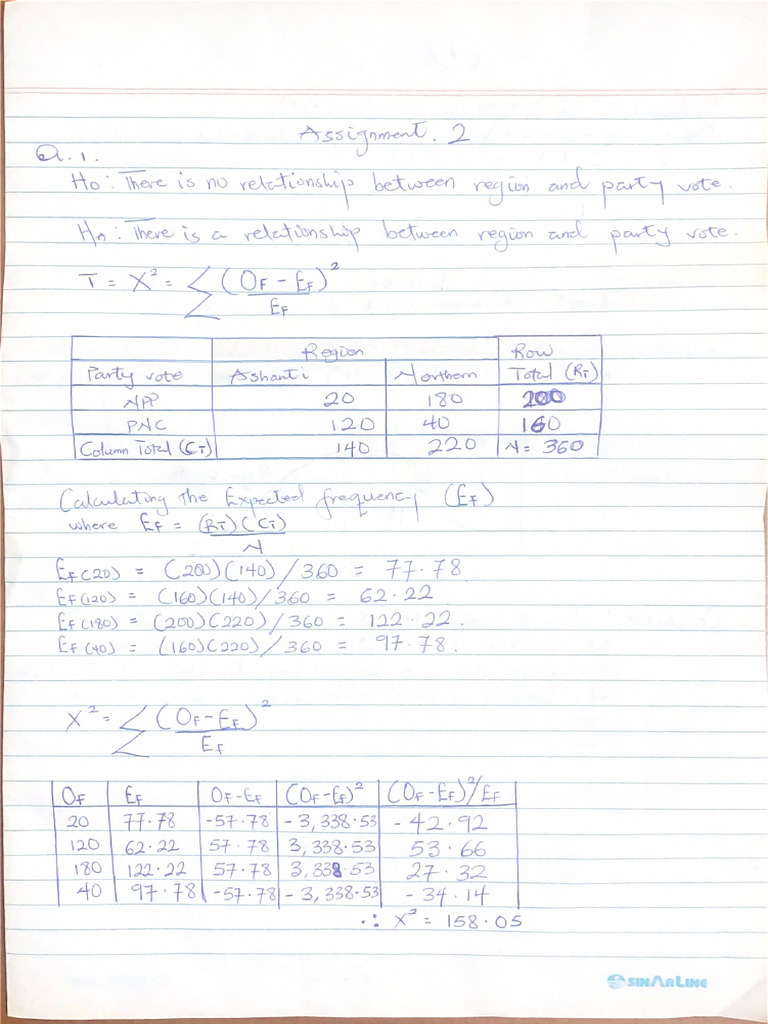 Assignment. 2
Q.1.
Ho: There is no relationship between region and party vote.
Hn: There is a relationship between region and party vote.
T = X² = ∑ (OF - EF)² / EF
Region Row
Party vote Ashanti Northern Total (RT)
NPP 20 180 200
PNC 120 40 160
Column Total (CT) 140 220 N = 360
Calculating the Expected frequency (EF)
where EF = (RT)(CT) / N
EF(20) = (200)(140)/360 = 77.78
EF(120) = (160)(140)/360 = 62.22
EF(180) = (200)(220)/360 = 122.22.
EF(40) = (160)(220)/360 = 97.78.
X² = ∑ (OF - EF)² / EF
OF EF OF-EF (OF-EF)² (OF-EF)²/EF
20 77.78 -57.78 -3,338.53 -42.92
120 62.22 57.78 3,338.53 53.66
180 122.22 57.78 3,338.53 27.32
40 97.78 -57.78 -3,338.53 -34.14
∴ X² = 158.05
SINARLINE